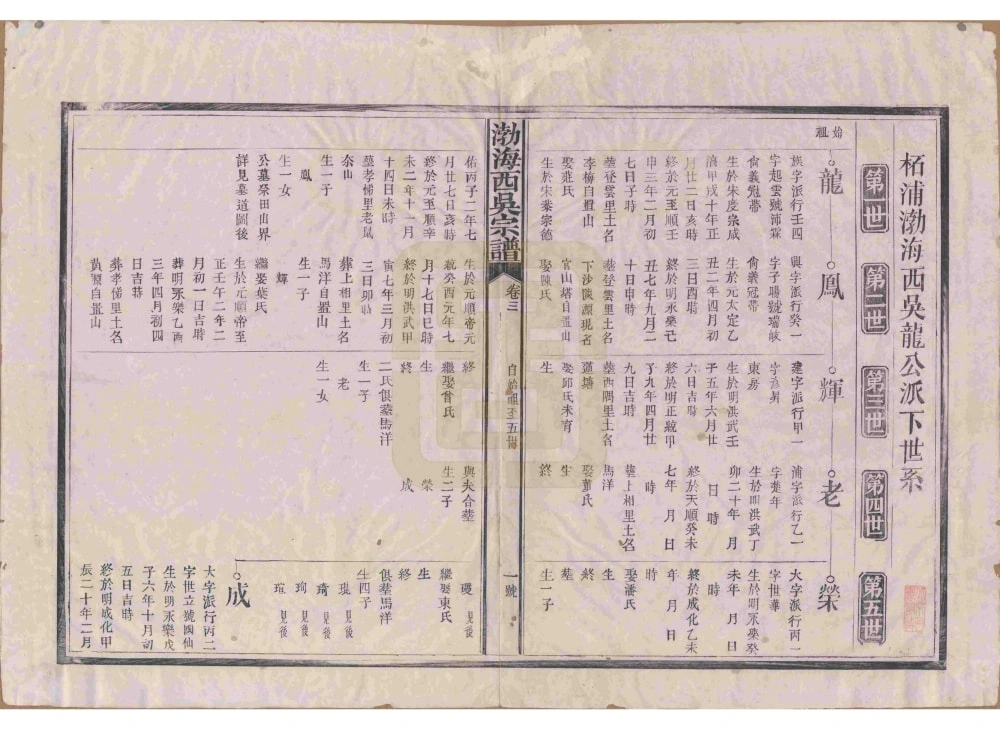 柘浦渤海西吳龍公派下世系
第一世
第二世
第三世
第四世
第五世
始祖
龍
鳳
輝
老
榮
族字派行壬四
字起雲號沛霖
尙義冠帶
生於宋度宗咸
淳甲戌十年正
月廿二日亥時
終於元至順壬
申三年二月初
七日子時
塟登雲里土名
李梅自置山
娶范氏
生於宋恭宗德
佑丙子二年七
月廿七日亥時
終於元至順辛
未二年十一月
十四日未時
塟孝悌里老鼠
奈山
生一子
鳳
生一女
公墓祭田山界
詳見墓道圖後
興字派行癸一
字子聘號瑞岐
尙義冠帶
生於元太定乙
丑二年四月初
三日酉時
終於明永樂己
丑七年九月二
十日申時
塟登雲里土名
下沙陳源現名
官山塔自置山
娶陳氏
生於元順帝元
統癸酉元年七
月十七日巳時
終於明洪武甲
寅七年三月初
三日卯時
葬上相里土名
馬洋自置山
生一子
輝
繼娶葉氏
生於元順帝至
正壬午二年二
月初一日吉時
葬明永樂乙酉
三年四月初四
日吉時
葬孝悌里土名
黃源自置山
建字派行甲一
東房
生於明洪武壬
子五年六月廿
六日吉時
終於明正統甲
子九年四月廿
九日吉時
塟西隅里土名
蓮塘
娶邱氏未育
生
終
繼娶翁氏
生
終
二氏俱塟馬洋
生一子
老
生一女
浦字派行乙一
字楚年
生於明洪武丁
卯二十年 月
日 時
終於天順癸未
七年 月 日
時
塟上相里土名
馬洋
娶董氏
生
終
與夫合塟
生二子
榮
成
大字派行丙一
字世華
生於明永樂癸
未年 月 日
時
終於成化乙未
年 月 日
時
娶潘氏
生
終
塟
生一子
璦 見後
繼娶東氏
生
終
俱塟馬洋
生四子
琨 見後
琦 見後
珣 見後
瑄 見後
成
大字派行丙二
字世立號國仙
生於明永樂戊
子六年十月初
五日吉時
終於明成化甲
辰二十年二月
渤海西吳宗譜
卷三
自始祖至五世
一號